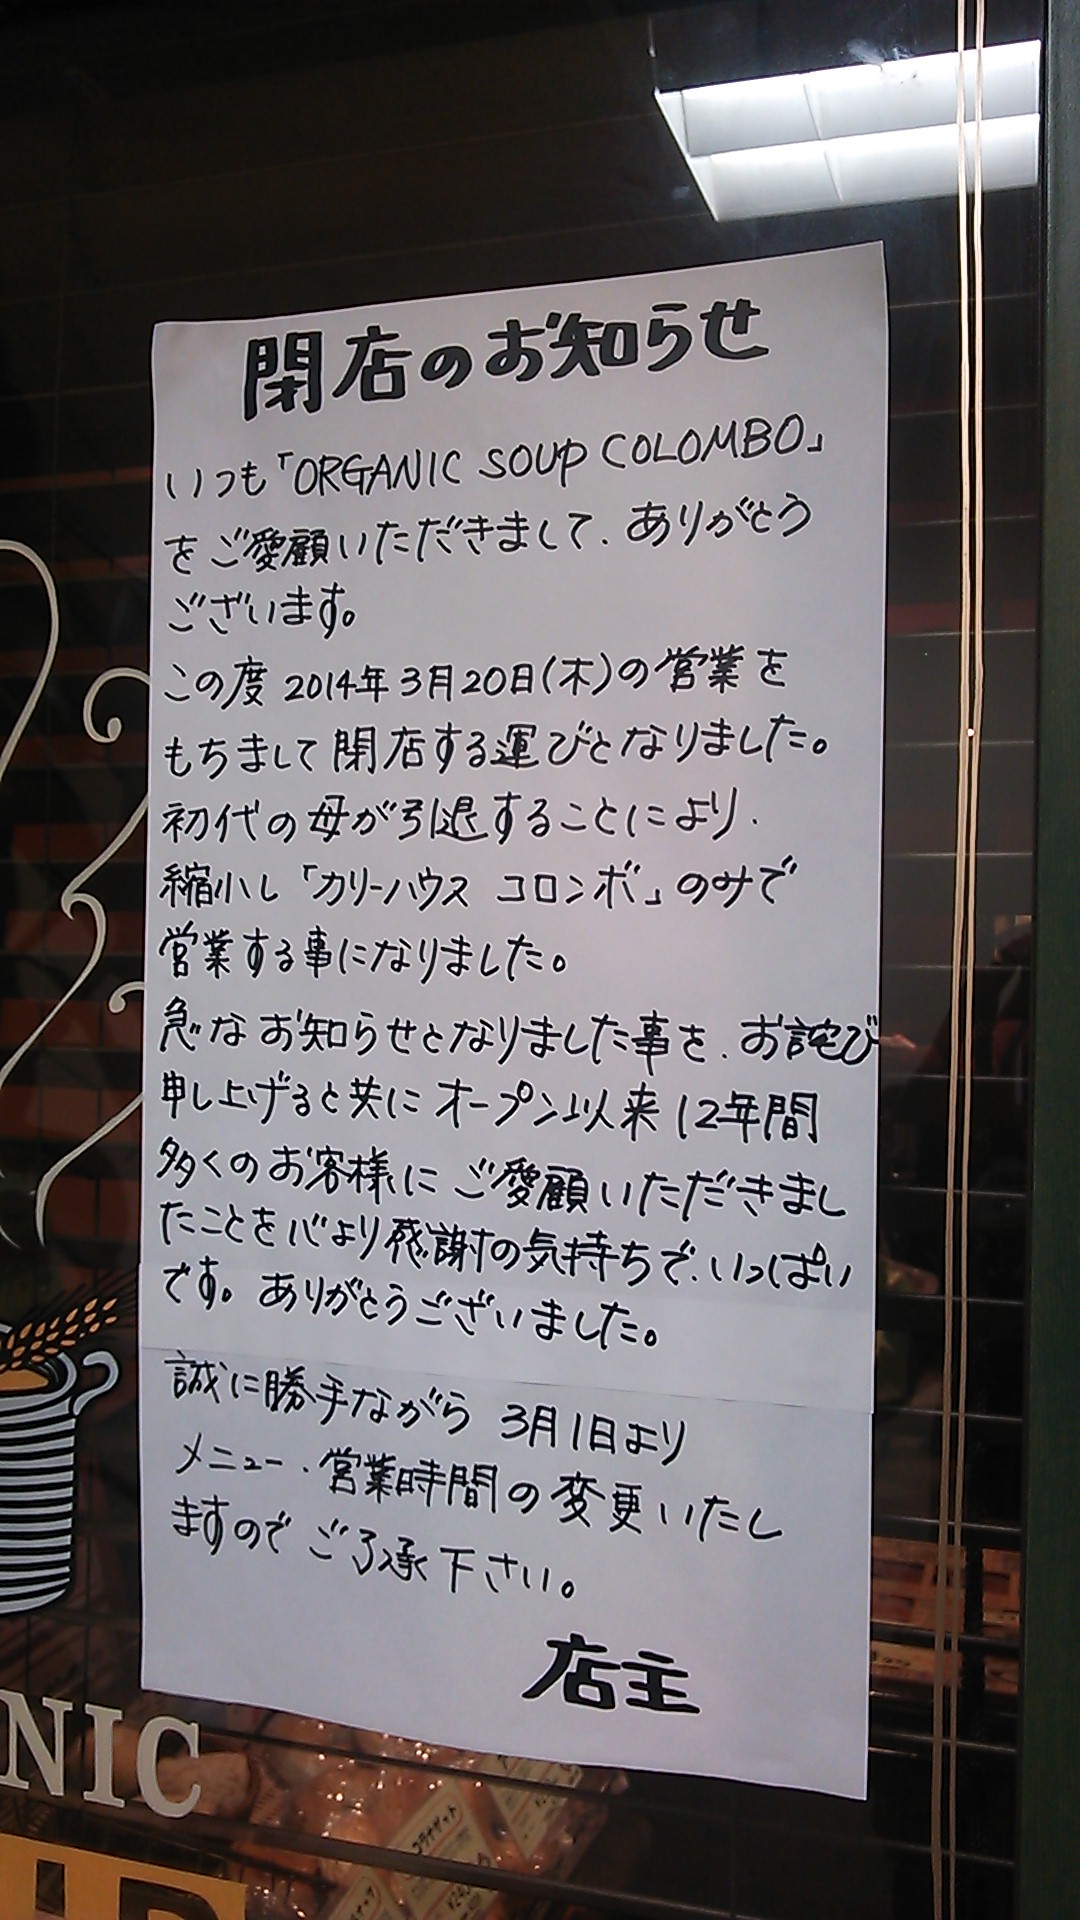 閉店のお知らせ
いつも「ORGANIC SOUP COLOMBO」
をご愛顧いただきまして、ありがとう
ございます。
この度 2014年3月20日(木)の営業を
もちまして閉店する運びとなりました。
初代の母が引退することにより、
縮小し「カリーハウス コロンボ」のみで
営業する事になりました。
急なお知らせとなりました事を、お詫び
申し上げると共にオープン以来12年間
多くのお客様にご愛顧いただきまし
たことを心より感謝の気持ちで、いっぱい
です。ありがとうございました。
誠に勝手ながら 3月1日より
メニュー、営業時間の変更いたし
ますのでご了承下さい。
店主
NIC